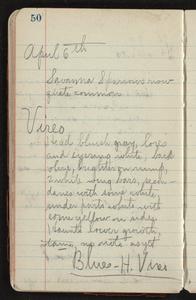 50
April 6th
Savanna Sparrows now
quite common.
Vireo
Head bluish gray, lores
and eyering white, back
olive, brighter on rump,
2 white wing bars, secon-
daries with some white,
under parts white with
some yellow on sides.
Haunts lower growth,
no note as yet
Blue-H. Vireo